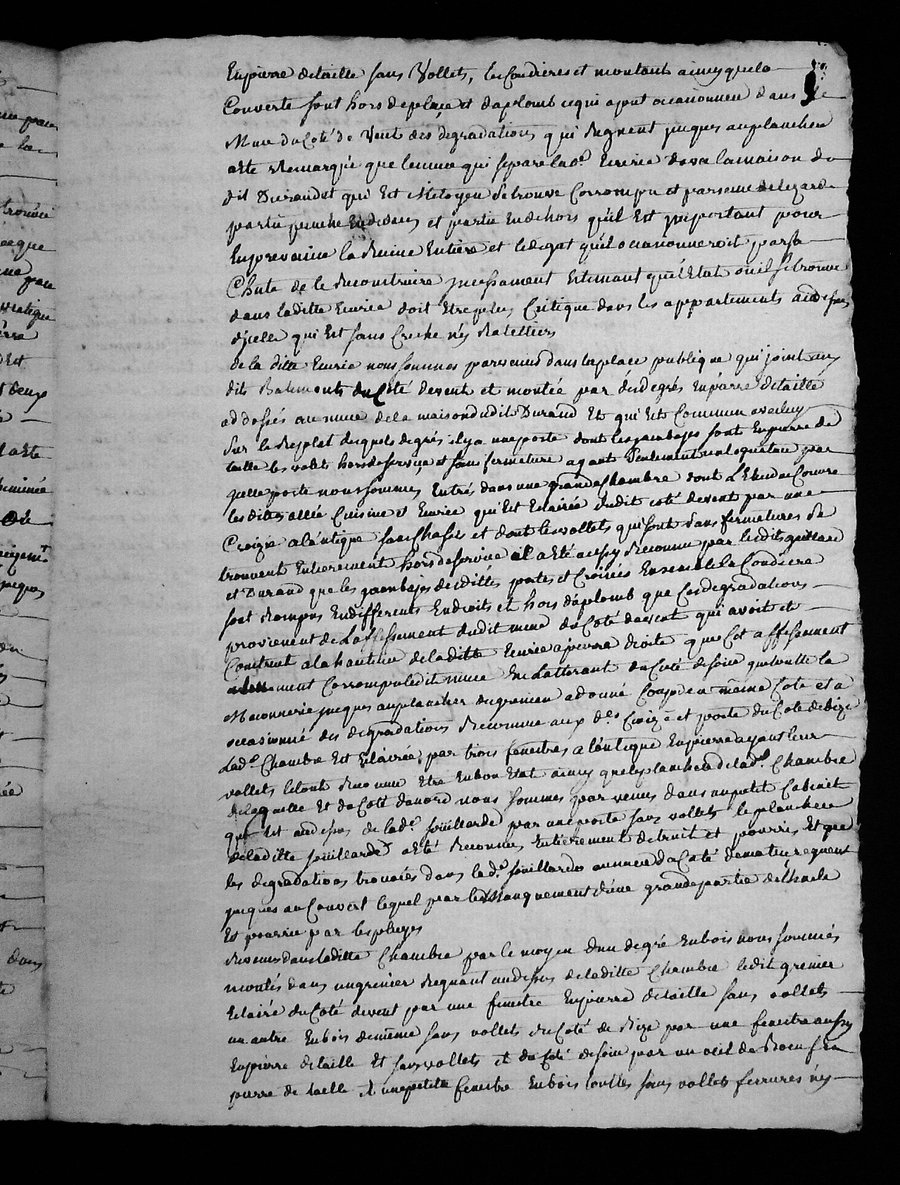 En pierre de taille sans Vollets, les Coudieres et montants ainsy que la
Couverte sont hors de place et d'aplomb ce qui a occasionné dans le
Mur du Coté de Vent des dégradations qui Regnent jusques au plancher
a été Remarqué que le mur qui separe lad.e Ecurie davec la maison du
dit Durand et qui Est Mitoyen se trouve Corrompu et parsemé de lezarde
partie penche En dedans et partie En dehors qu'il Est important pour
En prevenir la Ruine Entiere et le degat qu'il occasionneroit par sa
Chute de le Reconstruire incessament Estimant que l'Etat ou il se trouve
dans laditte Ecurie doit Etre plus Critique dans les appartements au dessus
d'icelle qui Est sans Creche n'y Rattelliers
de la ditte Ecurie nous sommes parvenus dans la place publique qui joint aux
dits Batiments du Coté de vent et montée par des degrés En pierre de taille
addossés au mur de la maison dudit Durand Et qui Est Commun avec luy
Sur le Replat desquels degrés il y a une porte dont les jambages sont En pierre de
taille les volet hors de service et sans fermeture ayant seulement un loqueteau par
quelle porte nous sommes Entrés dans une grande Chambre dont l'Etendue Couvre
les dittes allée Cuisine et Ecurie qu'Est Eclairée dudit coté de vent par une
Croizée a l'antique sans Chassis et dont les vollets qui sont sans fermetures se
trouvent Entierement hors de service il a Eté aussy Reconnu par lesdits
et Durand que les jambages desdittes portes et Croisées Ensemble la Coudiere
sont Rompus En differents Endroits et hors d'aplomb que Ces degradations
provienent de Laffessement dudit mur du Coté de vent qui avoit été
Construit a la hauteur de laditte Ecurie a pierre droite que Cet affessement
Corrompu ledit mur En Latterant du Coté de soire que toutte la
Maconnerie jusques au plancher du grenier a donné Coup de Ce même Coté et a
occasionné des degradations Reconnue aux d.es Croizé et porte du Coté de bize
Lad.e Chambre Est Eclairée par trois fenetres a l'antique En pierre ayant leur
vollets le tout Reconnu Etre En bon Etat ainsy que le plancher de lad.e Chambre
de laquelle Et du Coté du nord nous sommes parvenus dans un petit Cabinet
qui Est au dessus de lad.e souillarde par une porte sans vollets le plancher
de laditte souillarde a Eté Reconnu Entierement detruit et pourris Et que
les degradations trouvées dans lad.e souillarde au mur du Coté de matin regnent
jusques au Couvert lequel par le Manquement d'une grande partie de thuile
Est pourrie par les pluyes
Revenus dans laditte Chambre par le moyen d'un degré En bois nous sommes
montés dans un grenier Regnant au dessus de laditte Chambre ledit grenier
Eclairé du Coté de vent par une fenetre En pierre de taille sans vollets
un autre En bois de même sans vollets du Coté de Bize par une fenetre aussy
En pierre de taille Et sans vollets et du Coté de soire par un oeil de Boeuf En
pierre de taille Et une petite fenetre En bois touttes sans vollets ferrures n'y